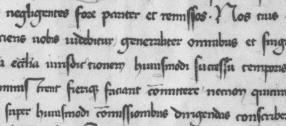 negligentes fore pariter et remissos. Nos eius
ciens nobis videbitur, generaliter omnibus et sing
a ecclia iurisdictionem huiusmodi successu temporis
ministrent fieriq faciant comittere necnon
super huiusmodi comissionibus dirigendas conscribe